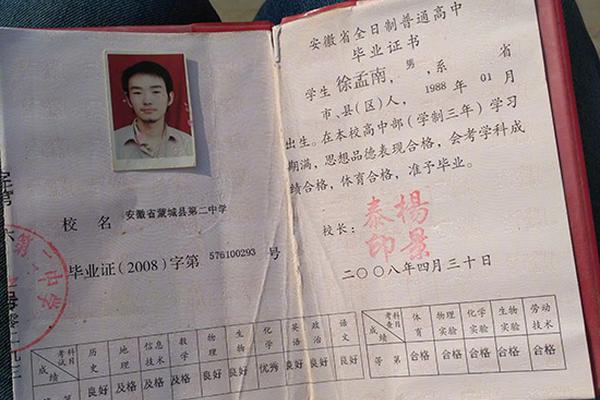 校名 安徽省蒙城县第二中学
毕业证（2008）字第 576100293 号
第二中学
考试科目 历史 地理 信息技术 数学 物理 生物 化学 英语 政治 语文
成绩 良好 及格 及格 及格 良好 良好 优秀 良好 良好 良好
安徽省全日制普通高中
毕业证书
学生 徐孟南，男，系 省
市、县（区）人，1988 年 01 月
出生。在本校高中部（学制三年）学习
期满，思想品德表现合格，会考学科成
绩合格，体育合格，准予毕业。
校长：
泰楊
印景
二〇〇八年四月三十日
考查科目 体育 物理实验 化学实验 生物实验 劳动技术
成绩 等第 合格 合格 合格 合格 合格